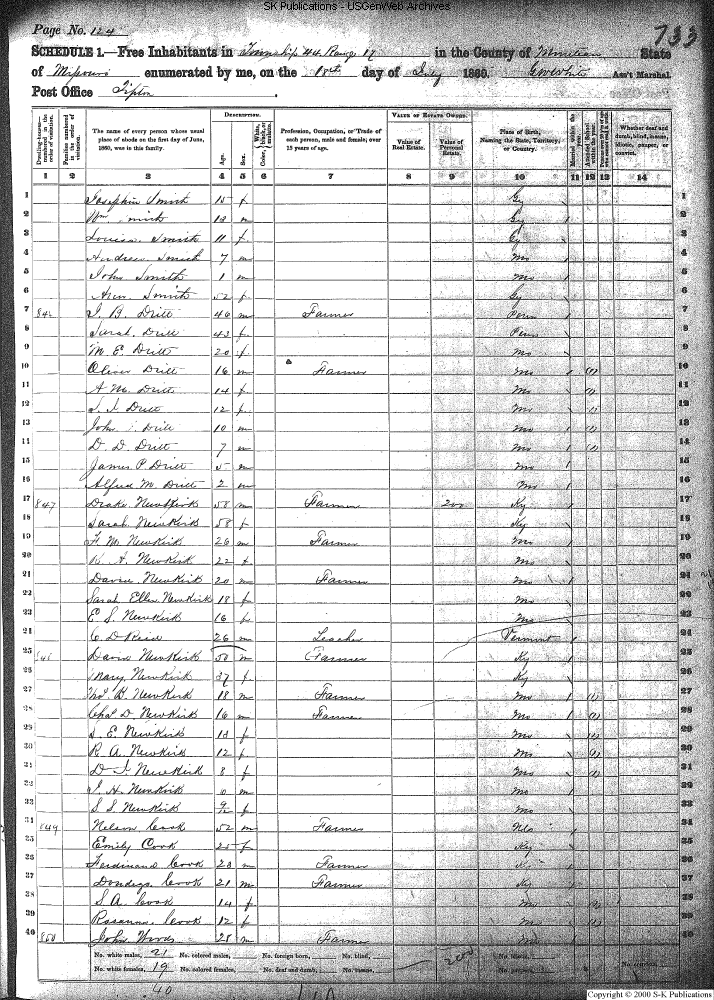 SK Publications - USGenWeb Archives
Page No. 124
733
SCHEDULE 1.—Free Inhabitants in Township 44 Range 17 in the County of Moniteau State
of Missouri enumerated by me, on the 18th day of July 1860. Ass't Marshal.
Post Office Tipton
DESCRIPTION. VALUE OF ESTATE OWNED.
Dwelling-houses—numbered in the order of visitation. Families numbered in the order of visitation. The name of every person whose usual place of abode on the first day of June, 1860, was in this family. Age. Sex. Color, White, black, or mulatto. Profession, Occupation, or Trade of each person, male and female, over 15 years of age. Value of Real Estate. Value of Personal Estate. Place of Birth, Naming the State, Territory, or Country. Married within the year. Attended School within the year. Whether deaf and dumb, blind, insane, idiotic, pauper, or convict.
1 2 3 4 5 6 7 8 9 10 11 12 13 14
1 Josephin Smith 15 f Ky 1
2 Wm Smith 13 m Ky 2
3 Louisa Smith 11 f Ky 3
4 Andrew Smith 7 m Mo 4
5 John Smith 1 m Mo 5
6 Ann Smith 52 f Ky 6
7 J. B. Dritt 46 m Farmer Penn 7
8 Sarah Dritt 43 f Penn 8
9 M. E. Dritt 20 f Mo 9
10 Oliver Dritt 16 m Farmer Mo 10
11 A M. Dritt 14 f Mo 11
12 Dritt 12 f Mo 12
13 John Dritt 10 m Mo 13
14 D. D. Dritt 7 m Mo 14
15 James P. Dritt 5 m Mo 15
16 Alfred M. Dritt 2 m Mo 16
17 847 Drake Newkirk 58 m Farmer 200 Ky 17
18 Sarah Newkirk 58 f Ky 18
19 M. Newkirk 26 m Farmer Mo 19
20 A. Newkirk 22 f Mo 20
21 Newkirk 20 m Farmer Mo 21
22 Sarah Ellen Newkirk 18 f Mo 22
23 E S. Newkirk 16 f Mo 23
24 C. D Reid 26 m Teacher Vermont 24
25 David Newkirk 50 m Farmer Ky 25
26 Mary Newkirk 37 f Ky 26
27 Thos B. Newkirk 18 m Farmer Mo 27
28 Chas D. Newkirk 16 m Farmer Mo 28
29 S. E. Newkirk 13 f Mo 29
30 R. A. Newkirk 12 f Mo 30
31 D. J. Newkirk 8 f Mo 31
32 H Newkirk m Mo 32
33 S. S. Newkirk 9/12 f Mo 33
34 849 Nelson Cook 52 m Farmer 34
35 Emily Cook f Ky 35
36 Ferdinand Cook 23 m Farmer 36
37 Cook 21 m Farmer Ky 37
38 S A. Cook 14 f Mo 38
39 Rosanna Cook 12 f Mo 39
40 850 John Woods 28 m Farmer Mo 40
No. white males, 21 No. colored males, No. foreign born, No. blind,
No. white females, 19 No. colored females, No. deaf and dumb, No. insane,
40
Copyright © 2000 S-K Publications